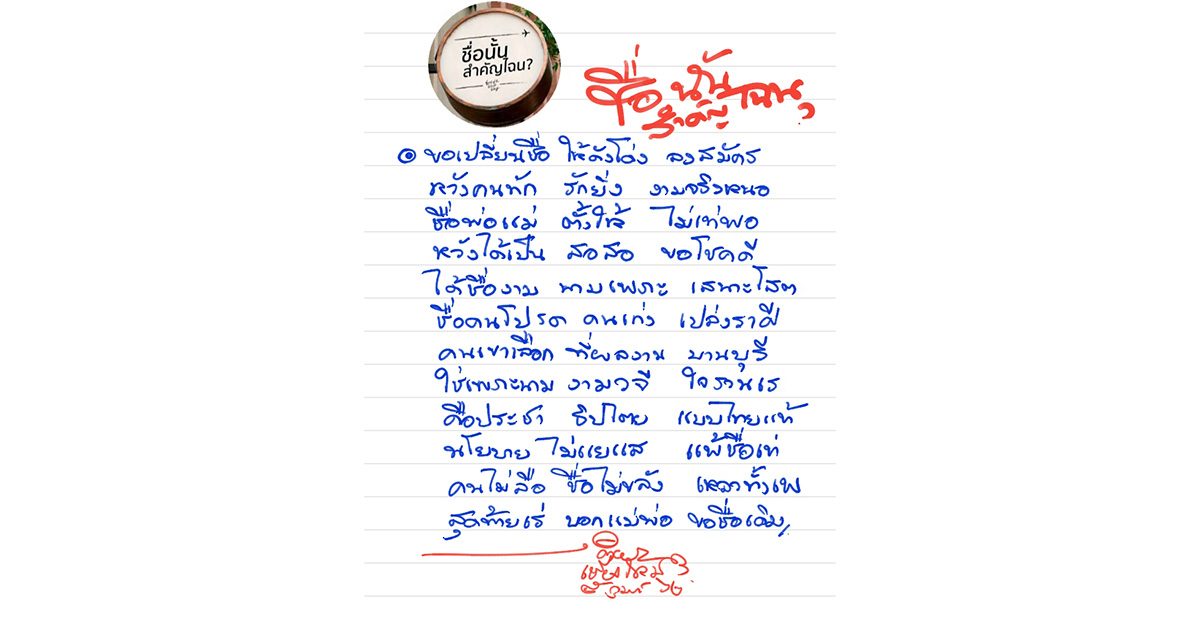 ชื่อนั้น
สำคัญไฉน?
ชื่อ นั้น
สำคัญ ไฉน
ขอเปลี่ยนชื่อ ให้ดังโด่ง ลงสมัคร
หวังคนทัก รักยิ่ง งามจริงหนอ
ชื่อพ่อแม่ ตั้งให้ ไม่เท่พอ
หวังได้เป็น สอสอ ขอโชคดี
ได้ชื่องาม นามเพราะ เสนาะโสต
ชื่อคนโปรด คนเก่ง เปล่งราศี
คนเขาเลือก ที่ผลงาน บานบุรี
ใช่เพราะนาม งามวจี ใจรวนเร
คือประชา ธิปไตย แบบไทยแท้
นโยบาย ไม่แยแส แพ้ชื่อเท่
คนไม่ลือ ชื่อไม่ขลัง เหลวทั้งเพ
สุดท้ายเร่ บอกแม่พ่อ ขอชื่อเดิม